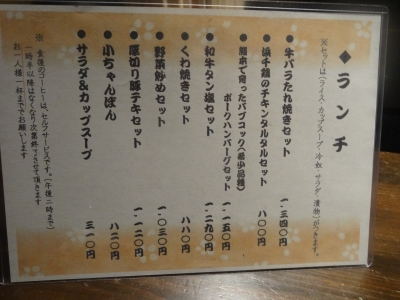 ◆ランチ
※セットは(ライス・カップスープ・冷奴・サラダ・漬物)がつきます。
牛バラたれ焼きセット 一.三四〇円
浜千鶏のチキンタルタルセット 八〇〇円
熊本で育ったバブコック(希少品種)
ポークハンバーグセット 一.一五〇円
和牛タン塩セット 一.二九〇円
くわ焼きセット 八八〇円
野菜炒めセット 一.〇三〇円
厚切り豚テキセット 一.一二〇円
小ちゃんぽん 八二〇円
サラダ&カップスープ 三一〇円
※食後のコーヒーは、セルフサービスです。(午後二時まで)
(一時半以降はなくなり次第終了させて頂きます
お一人様一杯まででお願いします